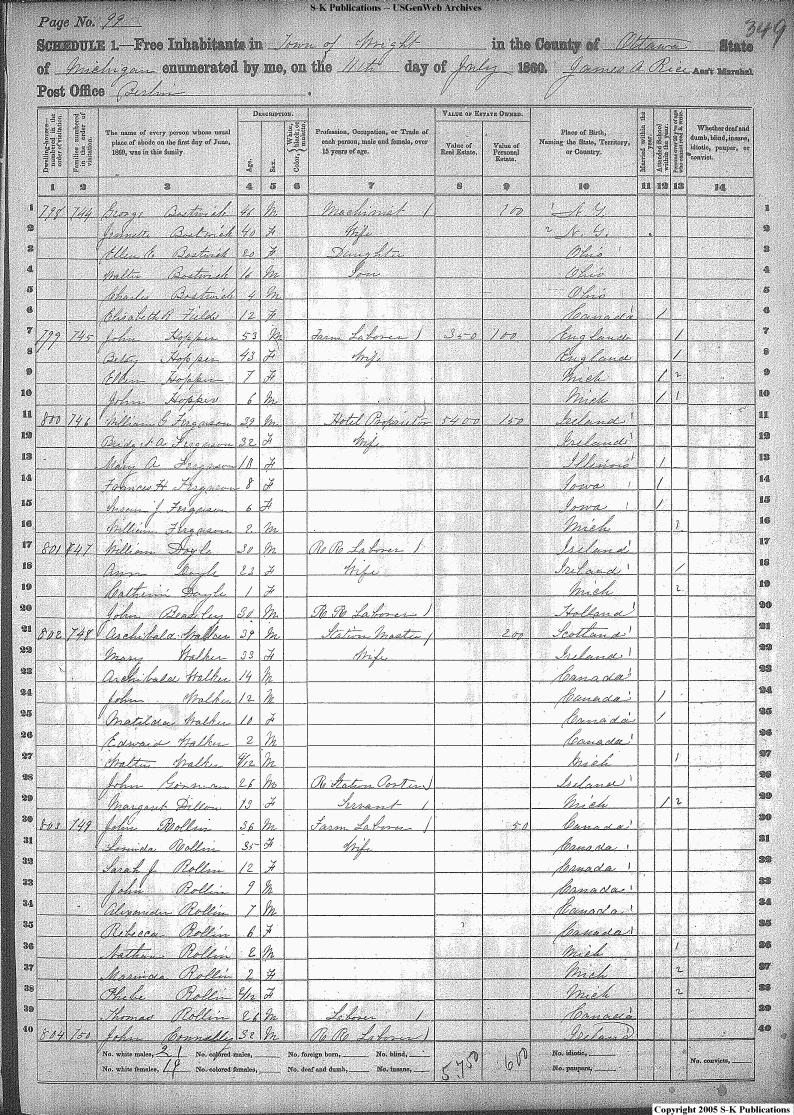 S-K Publications -- USGenWeb Archives
Page No. 99
349
SCHEDULE 1.—Free Inhabitants in Town of Wright in the County of Ottawa State
of Michigan enumerated by me, on the 11th day of July 1860. James A Rice Ass't Marshal
Post Office Berlin
DESCRIPTION. VALUE OF ESTATE OWNED.
Dwelling-houses—numbered in the order of visitation. Families numbered in the order of visitation. The name of every person whose usual place of abode on the first day of June, 1860, was in this family. Age. Sex. Color, White, black, or mulatto. Profession, Occupation, or Trade of each person, male and female, over 15 years of age. Value of Real Estate. Value of Personal Estate. Place of Birth, Naming the State, Territory, or Country. Married within the year. Attended School within the year. Persons over 20 y'rs of age who cannot read & write. Whether deaf and dumb, blind, insane, idiotic, pauper, or convict.
1 2 3 4 5 6 7 8 9 10 11 12 13 14
1 798 744 George Bostwick 46 M Machinist 1 100 1 N.Y. 1
2 Jeanette Bostwick 40 F Wife 2 N.Y. 2
3 Ellen C Bostwick 20 F Daughter Ohio 3
4 Walter Bostwick 16 M Son Ohio 4
5 Charles Bostwick 4 M Ohio 5
6 Elisabeth R Fields 12 F Canada 1 6
7 799 745 John Hopper 53 M Farm Laborer 1 350 100 England 1 7
8 Betsy Hopper 43 F Wife England 1 8
9 Ellen Hopper 7 F Mich 1 2 9
10 John Hopper 6 M Mich 1 1 10
11 800 746 William G Ferguson 39 M Hotel Proprietor 5400 150 Ireland 11
12 Bridget A Ferguson 32 F Wife Ireland 12
13 Mary A Ferguson F Illinois 1 13
14 Frances H Ferguson 8 F Iowa 1 14
15 J Ferguson 6 F Iowa 1 15
16 William Ferguson 2 M Mich 16
17 801 847 William Doyle 30 M R R Laborer 1 Ireland 17
18 Ann Doyle 23 F Wife Ireland 1 18
19 Catherine Doyle 1 F Mich 2 19
20 John Beasley 30 M R R Laborer 1 Holland 20
21 802 748 Archibald Walker 39 M Station Master 1 200 Scotland 21
22 Mary Walker 33 F Wife Ireland 22
23 Archibald Walker 14 M Canada 23
24 John Walker 12 M Canada 1 24
25 Matilda Walker 10 F Canada 1 25
26 Edward Walker 2 M Canada 26
27 Walter Walker M Mich 1 27
28 John Gorman 26 M R Station Ireland 28
29 Margaret Dillon 13 F Servant 1 Mich 1 2 29
30 803 749 John Rollin 36 M Farm Laborer 1 50 Canada 30
31 Rollin 35 F Wife Canada 31
32 Sarah J Rollin 12 F Canada 32
33 John Rollin 9 M Canada 33
34 Alexander Rollin 7 M Canada 34
35 Rebecca Rollin 6 F Canada 35
36 Nathan Rollin 2 M Mich 1 36
37 Marinda Rollin 2 F Mich 2 37
38 Phebe Rollin 2/12 F Mich 2 38
39 Thomas Rollin 26 M Laborer 1 Canada 39
40 804 750 John Connelly 32 M R R Laborer 1 Ireland 40
No. white males, 21 No. colored males, No. foreign born, No. blind, 5,750 600 No. idiotic, No. convicts,
No. white females, 19 No. colored females, No. deaf and dumb, No. insane, No. paupers,
Copyright 2005 S-K Publications